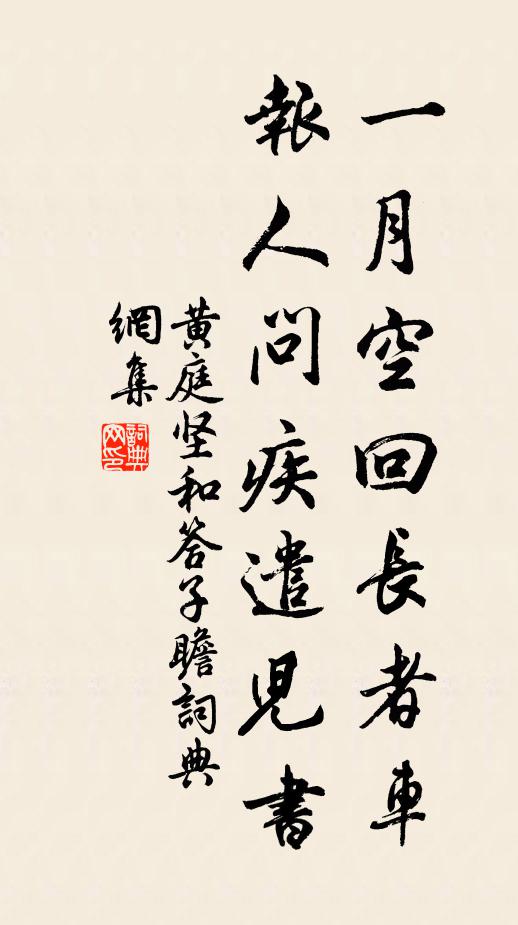 一月空回長者車
報人問疾遣兒書
黄庭坚和答子瞻詞典
網集
詞典
网印